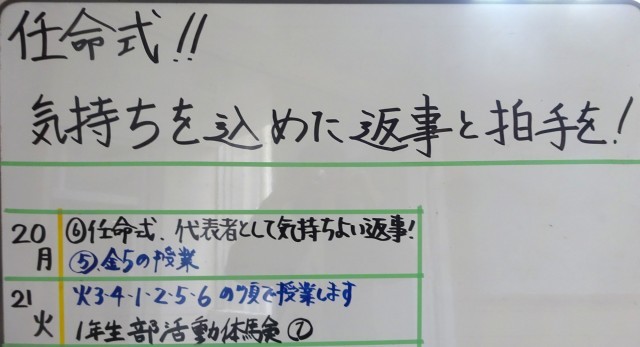 任命式!!
気持ちを込めた返事と拍手を!
20 ⑥任命式、代表者として気持ちよい返事!
月 ⑤、金5の授業
21 火3・4・1・2・5・6の順で授業します
火 1年生部活動体験⑦